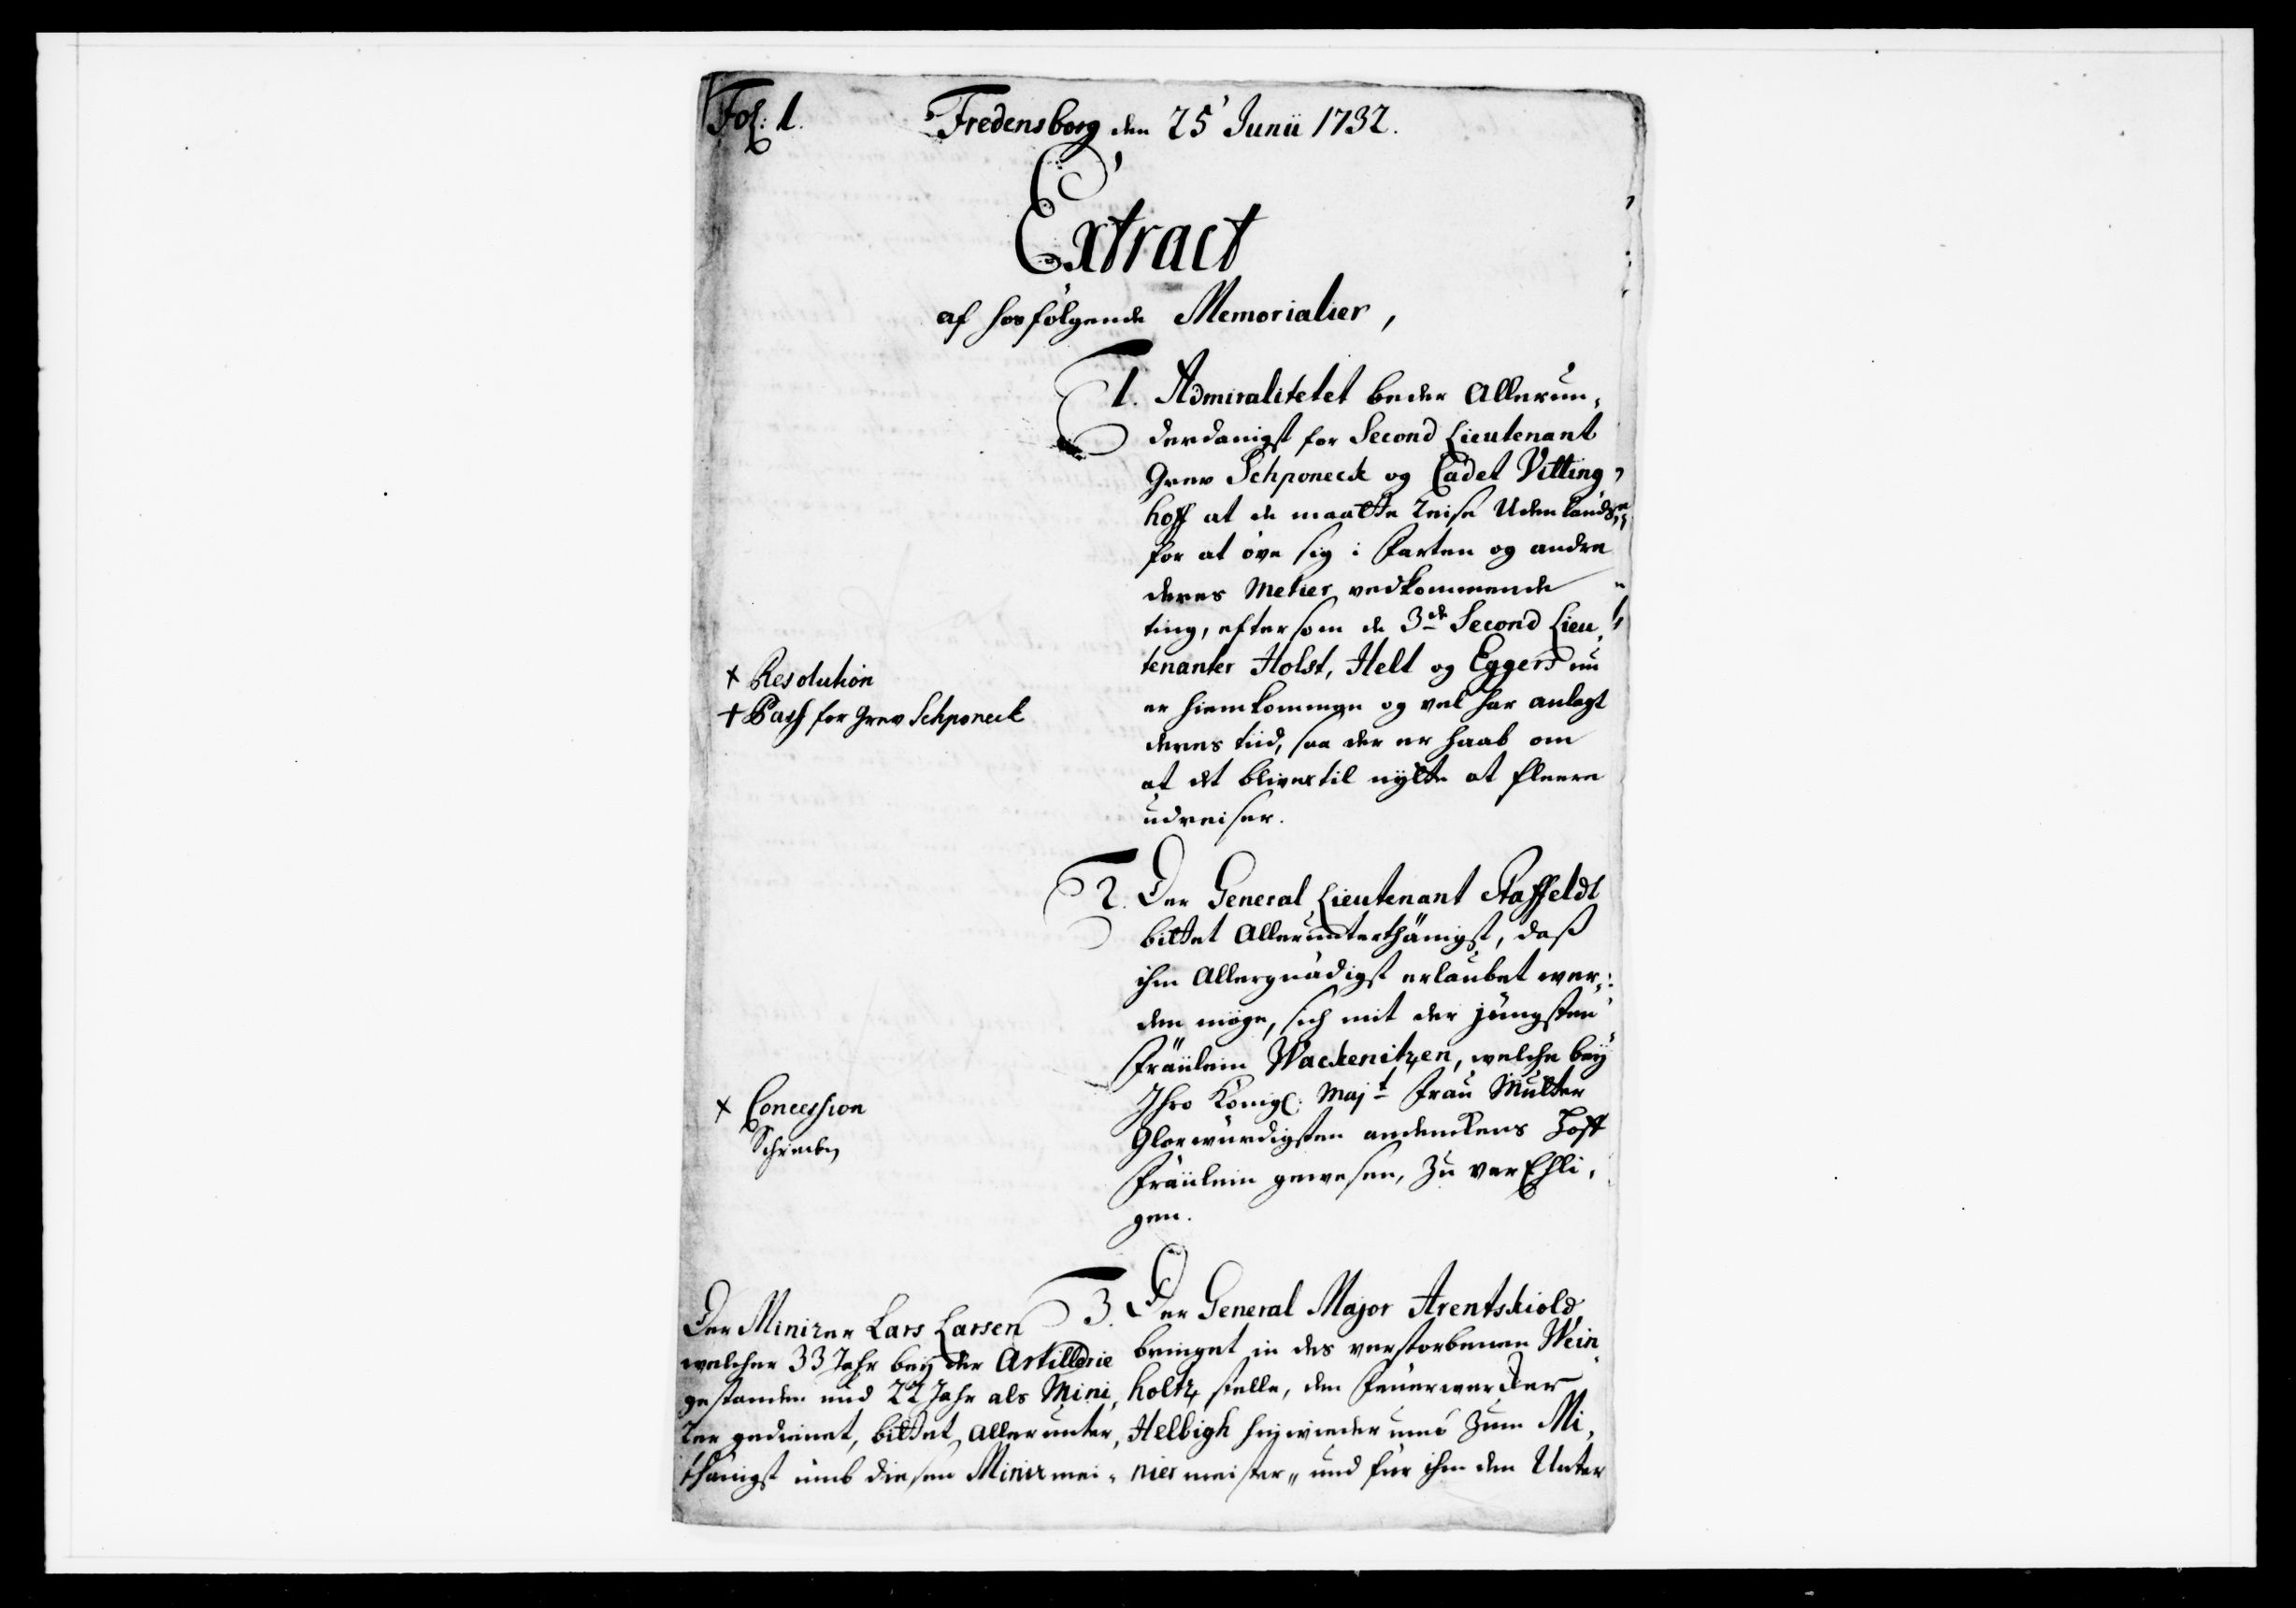 Fol: 1.
Fredensborg den 25 Junii 1732.
Extract
af hosfølgende Memorialier,
1. Admiralitetet beder Allerun,
derdanigst for Second Lieutenant
Grev Schponeck og Cadet Vitting,
hoff at de maatte reise Udenlands,
for at öve sig i Farten og andre
deres Metier vedkommende
ting, eftersom de 3de Second Lieu,
tenanter Holst, Helt og Eggers nu
er hiemkommen og vel har anlagt
deres tiid, saa der er haab om
at det bliver til nÿtte at fleere
udreiser.
x Resolution
+ Pass for Grev Schponeck
2. Der General Lieutenant Staffeldt
bittet Allerunterthänigst, daß
ihm Allergnädigst erlaubet wer,
den möge, sich mit der jüngsten
Fräülein Wackenitzen, welche beÿ
Ihro Königl: Majt Frau Mutter
Glorwürdigsten andenckens Hoff
Fräülein gewesen, zu verEhli,
gen.
x Concession
Schreiben
3. Der General Major Arentskiold
bringet in des verstorbenen Wein,
holtz stelle, den Feuerwercker
Helbigh hinwieder umb zum Mi,
niermeister, und für ihm den Unter
Der Minirer Lars Larsen
welcher 33 Jahr beÿ der Artillerie
gestanden und 22 Jahr als Mini,
rer gedienet, bittet allerunter,
thänigst umb diesen Minirmei,